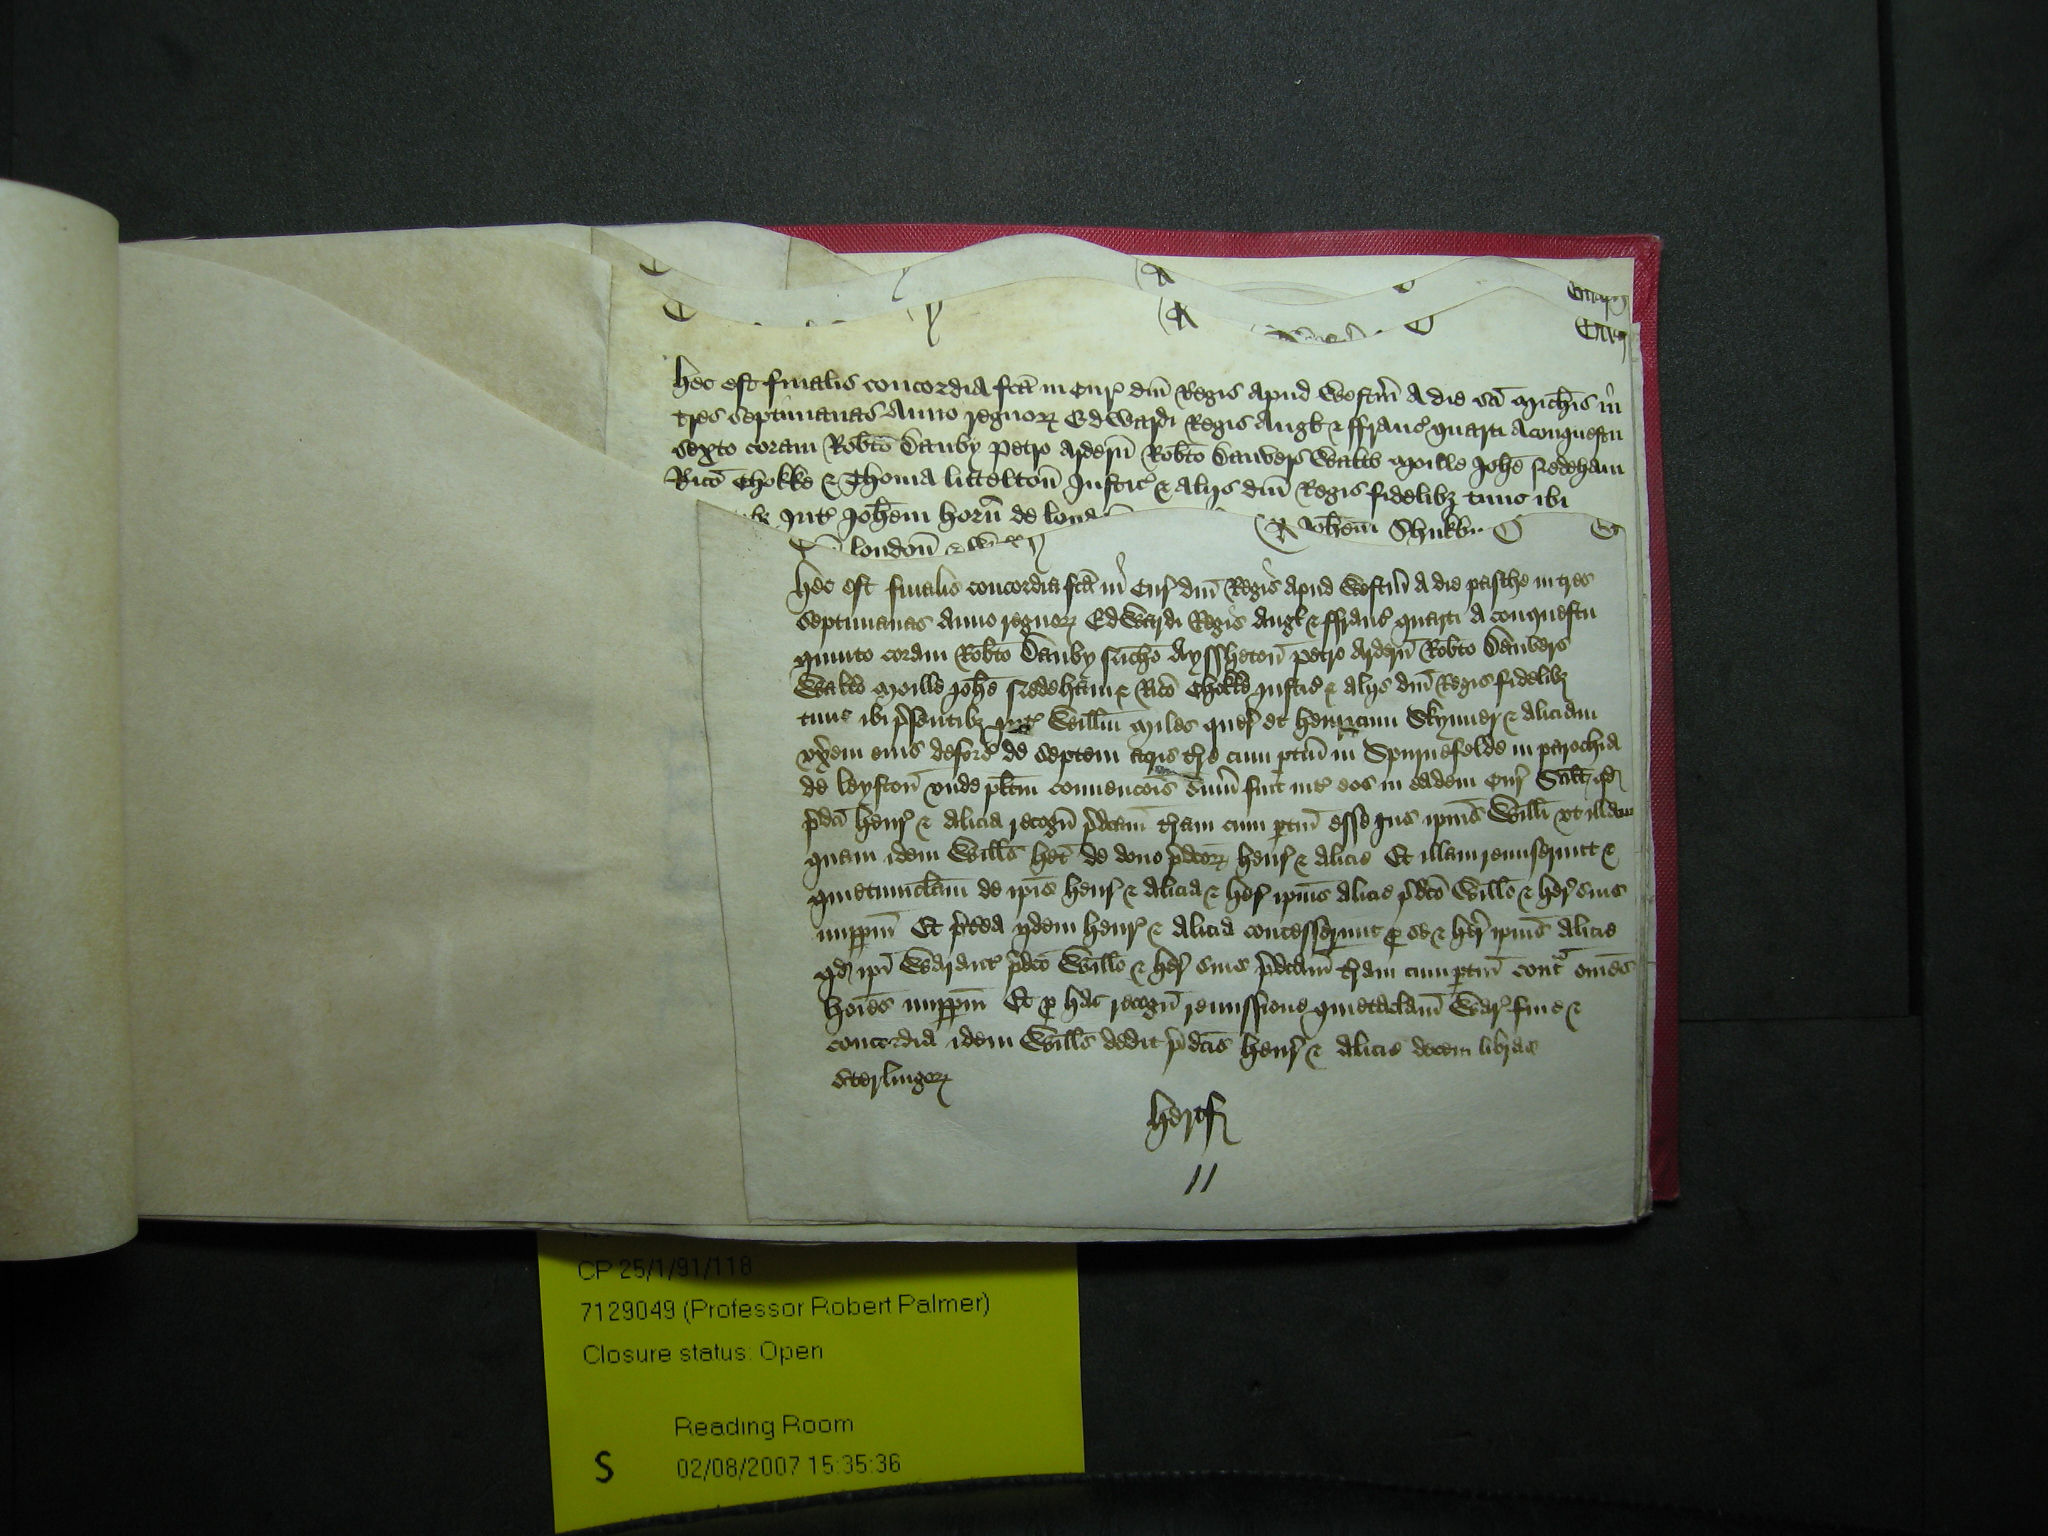 hec est finalis concordia fcā in Cur' dnī Regis apud Westm̄ A die scī Mich̄is in
tres septimanas Anno regnoꝝ Edwardi Regis Angl' & ffranc' quarti a conquestu
sexto coram Rob̄to Danby Petro Ardern̄ Rob̄to Danvers Walt̄o Moille Joh̄e Nedeham
Ric̄o Chokke & Thoma littelton̄ Justic' & alijs dnī Regis fidelibȝ tunc ibi
Int' Joh̄em horn̄ de
Joh̄em
london̄
hec est finalis concordia fcā in Cur' dnī Regis apud Westm̄ A die pasche in tres
septimanas anno regnoꝝ Edwardi Regis Angl' & ffranc' quarti a conquestu
quinto coram Rob̄to Danby Nich̄o Ayssheton̄ Petro Ardern̄ Rob̄to Danvers
Walt̄o Moille Joh̄e Nedeham & Ric̄o Chokke Justic' & alijs dnī Regis fidelibȝ
tunc ibi p'sentibȝ Int' Will̄m Miles quer' et henricum Skynner & aliciam
vx̄em eius deforc' de septem acris tr̄e cum ptin̄ in in parochia
de leyston̄ vnde pl̄itm convencōis sum̄ fuit int' eos in eadem Cur' Scilt̄ qd'
p'dc̄i henr' & alicia recogn̄ p'dc̄am tr̄am cum ptin̄ esse jus ip̄ius Will̄i vt illam
quam idem Will̄s het̄ de dono p'dc̄oꝝ henr' & alicie Et illam remiserunt &
quietumclam̄ de ip̄is henr' & alicia & her' ip̄ius alicie p'dc̄o Will̄o & her' suis
imppm̄ Et p't'ea ijdem henr' & alicia concesserunt p se & her' ip̄ius alicie
qd' ip̄i Warant' p'dc̄o Will̄o & her' suis p'dc̄am tr̄am cum ptin̄ cont̄ om̄es
hoīes imppm̄ Et p hac recogn̄ remissione quietaclam̄ War' fine &
concordia idem Will̄s dedit p'dc̄is henr' & alicie decem libras
sterlingoꝝ
hertf'
11
CP 25/1/91/118
7129049 (Professor Robert Palmer)
Closure status: Open
Reading Room
S 02/08/2007 15:35:36